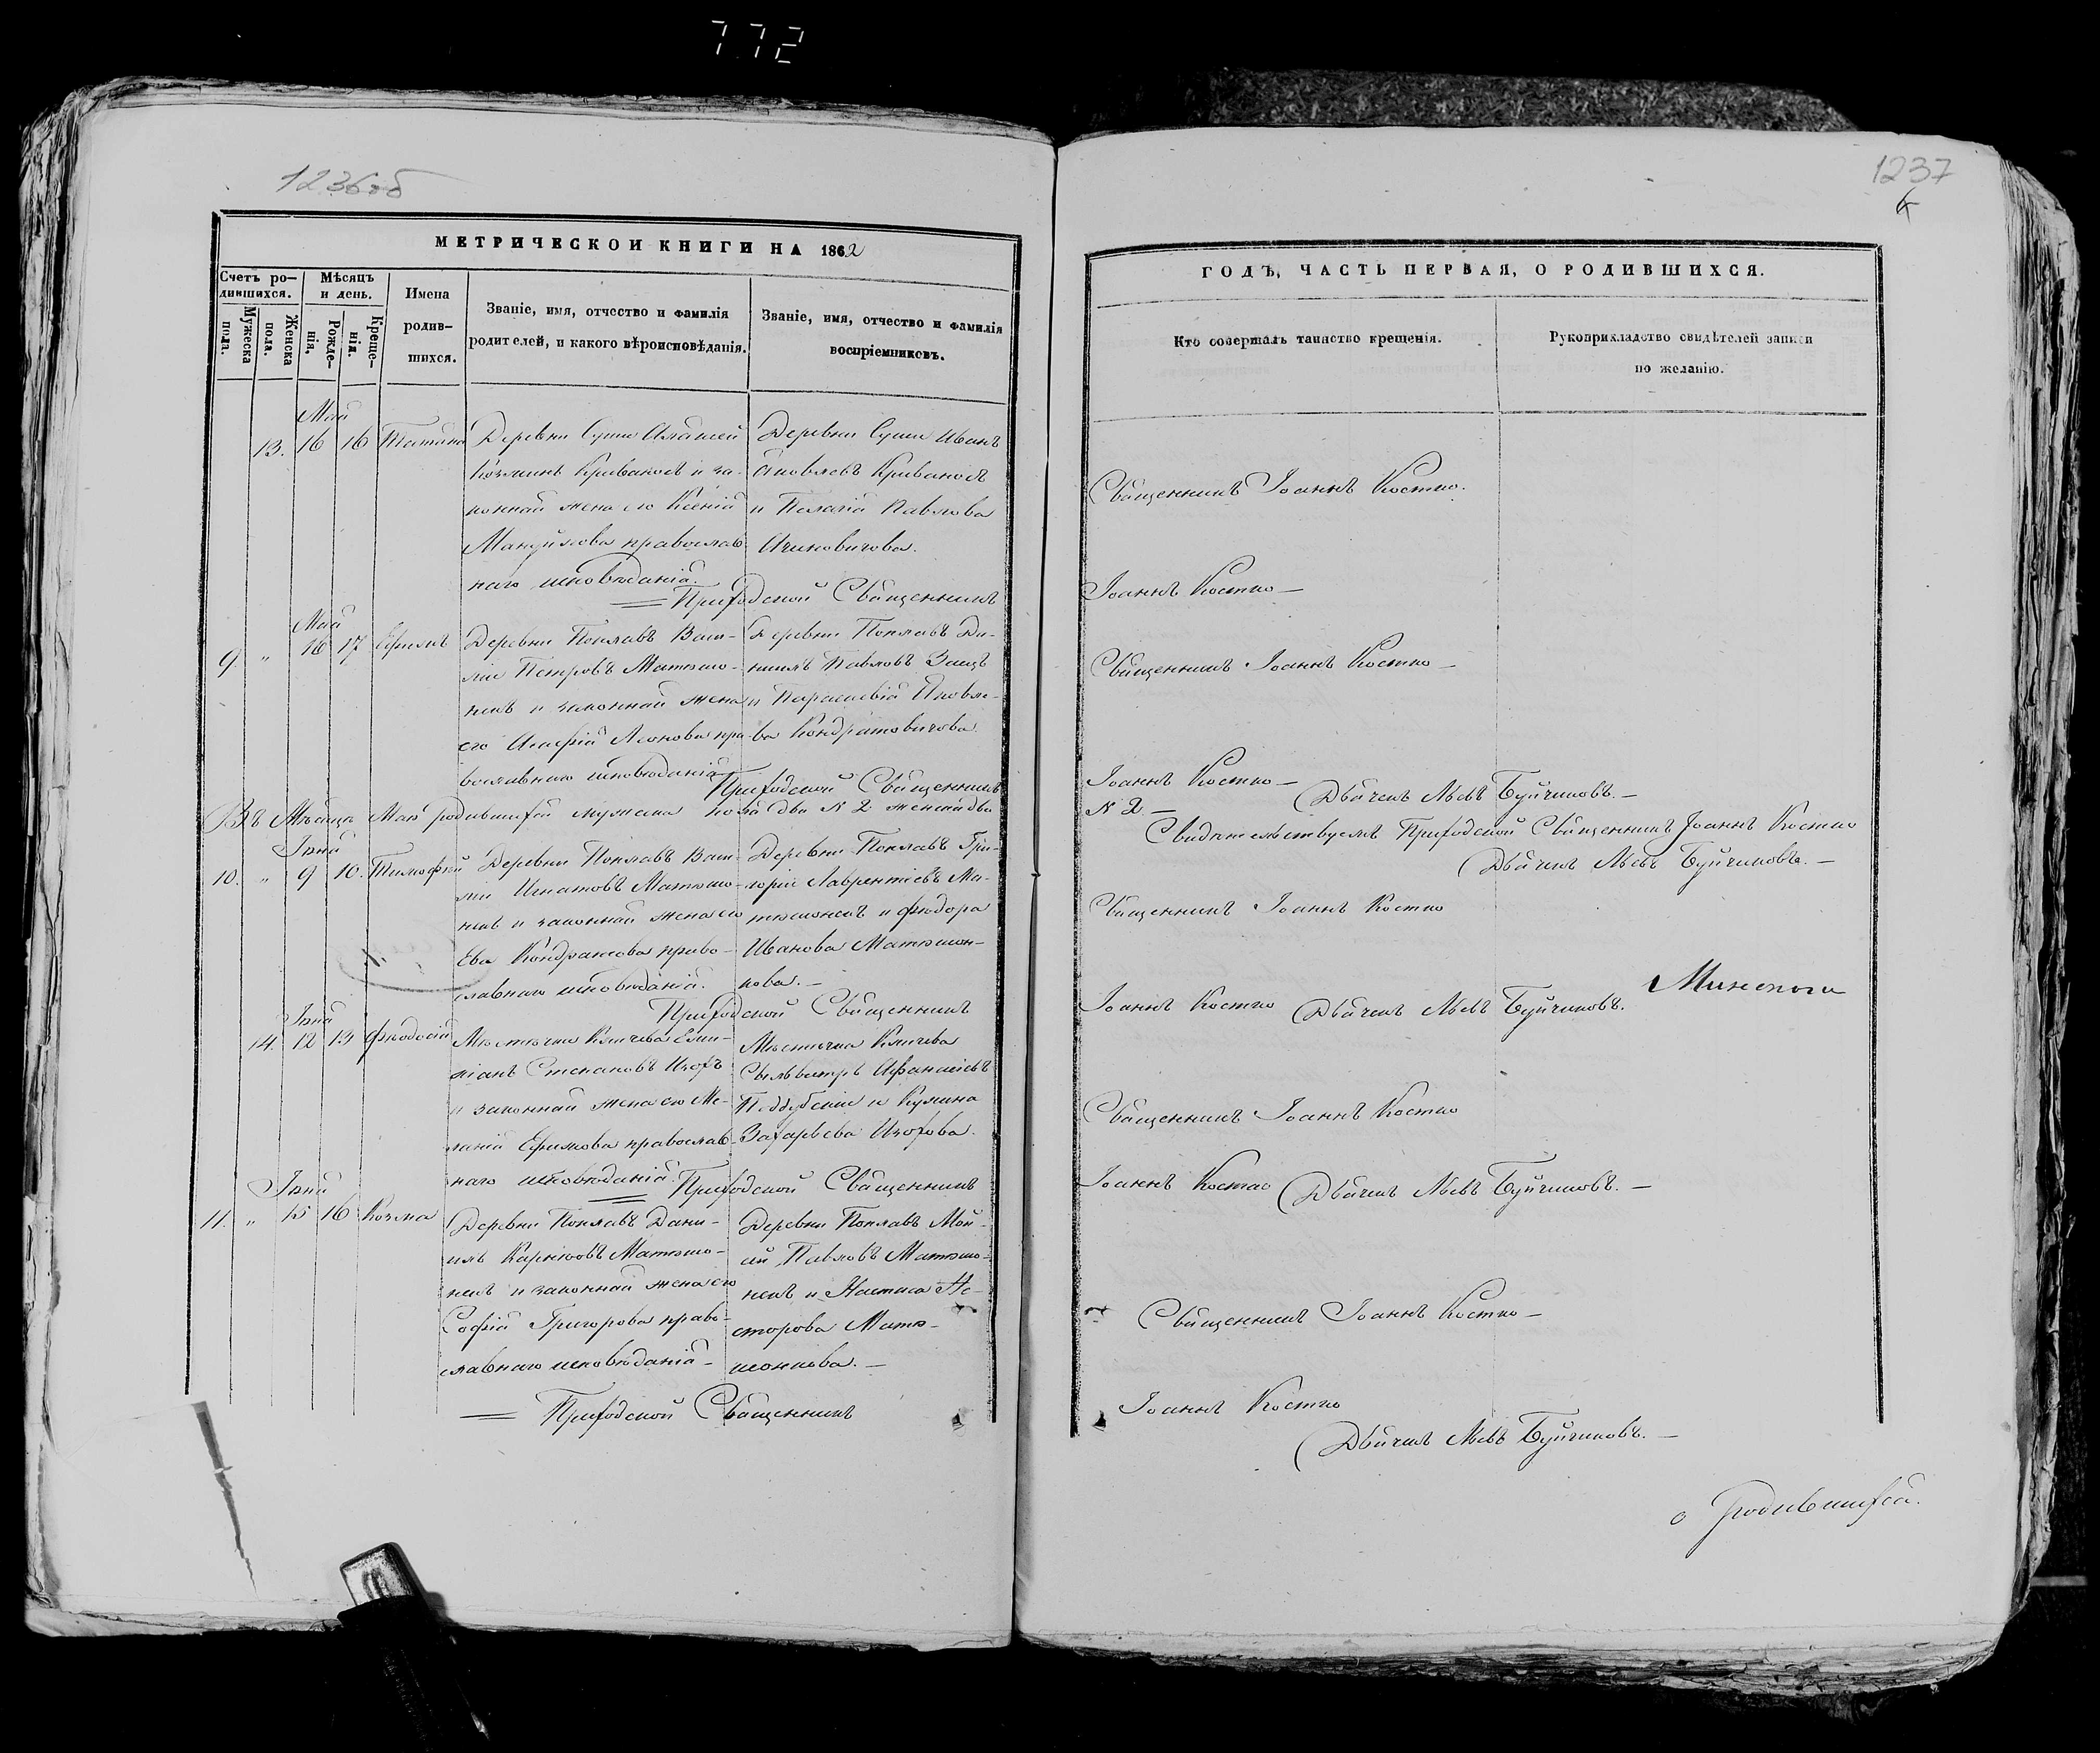 772
1236об
МЕТРИЧЕСКОИ КНИГИ НА 1862
Счетъ ро-
дившихся.
Мѣсяцъ
и день.
Имена
родив-
шихся.
Званіе, имя, отчество и фамилія
родителей, и какого вѣроисповѣданія.
Званіе, имя, отчество и фамилія
воспріемниковъ.
Мужеска
пола.
Женска
пола.
Рожде-
нія.
Креще-
нія.
Май
13. 16 16 Татiана
Деревни Суши
Козминъ Криванос и за-
конная жена его Ксенія
Мануйлова православ-
наго исповѣданія.
Деревни Суши Иванъ
Яковлевъ Криванос
и Пелагія Павлова
Приходской Священникъ
Май
9. „ 16 17 Ефимъ
Деревни Поплавъ Васи-
лій Петровъ Матюшо-
нокъ и законная жена
его Агафія Леонова пра-
вославнаго исповѣданія
Деревни Поплавъ Да-
нилъ Павловъ Заяцъ
и Параскевія Яковле-
ва Кондратовичова
Приходской Священникъ
Въ Мѣсяцѣ Маѣ родившихся мужска пола два № 2 женска два
Іюня
10. „ 9 10. Тимофей
Деревни Поплавъ Васи-
лій Игнатовъ Матюшо-
нокъ и законная жена его
Ева Кондратова право-
славнаго исповѣданія.
Деревни Поплавъ Гри-
горій Лаврентіевъ Ма-
тюшонокъ и Ѳеодора
Иванова Матюшон-
кова.
Приходской Священникъ
Іюня
14. 12 13 Ѳеодосія
Мѣстечка Кличева Емил-
ліанъ Степановъ Изохъ
и законная жена его Ме-
ланія Ефимова православ-
наго исповѣданія.
Мѣстечка Кличева
Сильвестръ Афанасіевъ
Поддубскій и Кулина
Захарьева Изохова.
Приходской Священникъ
Іюня
11. „ 15 16 Козма
Деревни Поплавъ Дани-
илъ Карповъ Матюшо-
нокъ и законная жена его
Софія Григорова право-
славнаго исповѣданія
Деревни Поплавъ Мои-
сей Павловъ Матюшо-
нокъ и Настася Не-
сторова Матю-
шонкова.
Приходской Священникъ
1237
ГОДЪ, ЧАСТЬ ПЕРВАЯ, О РОДИВШИХСЯ.
Кто совершалъ таинство крещенія.
Рукоприкладство свидѣтелей записи
по желанію.
Священникъ Іоаннъ Костко.
Іоаннъ Костко
Священникъ Іоаннъ Костко
Іоаннъ Костко
Дьячекъ Левъ Буйчиковъ.
№ 2
Свидѣтельствуемъ Приходской Священникъ Іоаннъ Костко
Дьячекъ Левъ Буйчиковъ.
Священникъ Іоаннъ Костко
Минского
Іоаннъ Костко Дьячекъ Левъ Буйчиковъ.
Священникъ Іоаннъ Костко
Іоаннъ Костко Дьячекъ Левъ Буйчиковъ.
Священникъ Іоаннъ Костко
Іоаннъ Костко
Дьячекъ Левъ Буйчиковъ.
о Родившихся.